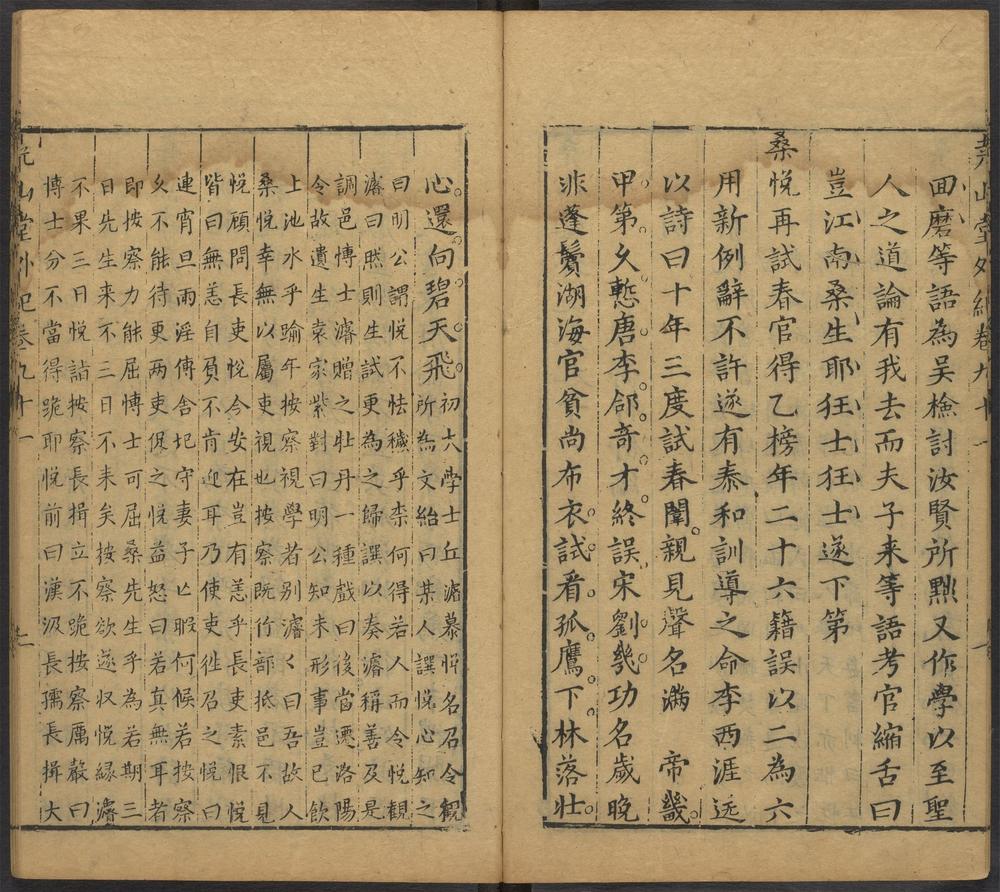 堯山堂外紀卷九十一
回磨等語為吴檢討汝賢所黜又作學以至聖
人之道論有我去而夫子来等語考官縮舌曰
豈江南桑生耶狂士狂士遂下第
桑悦再試春官得乙榜年二十六籍誤以二為六
用新例辭不許遂有泰和訓導之命李西涯送
以詩曰十年三度試春闈親見聲名滿 帝畿
甲第久慙唐李郃奇才終誤宋劉幾功名歲晚
非蓬鬢湖海官貧尚布衣試看孤鷹下林落壮
心還向碧天飛初大學士丘濬慕悦名召令觀
所為文紿曰某人譔悦心知之
曰明公謂悦不怯穢乎柰何得若人而令悦觀
濬曰然則生試更為之歸譔以奏濬稱善及是
調邑博士濬贈之牡丹一種戲曰後當遷路陽
令故遺生袁家紫對曰明公知未形事豈已飲
上池水乎踰年按察視學者别濬〻曰吾故人
桑悦幸無以屬吏視也按察既行部抵邑不見
悦顧問長吏悦今安在豈有恙乎長吏素恨悦
皆曰無恙自負不肯迎耳乃使吏徃召之悦曰
連宵旦雨淫傳舍圮守妻子亡暇何候若按察
乆不能待更两吏促之悦益怒曰若真無耳者
即按察力能屈博士可屈桑先生乎為若期三
日先生来不三日不来矣按察欲遂収悦縁濬
不果三日悦詣按察長揖立不跪按察厲嚴曰
博士分不當得跪耶悦前曰漢汲長孺長揖大
堯山堂外紀卷九十一